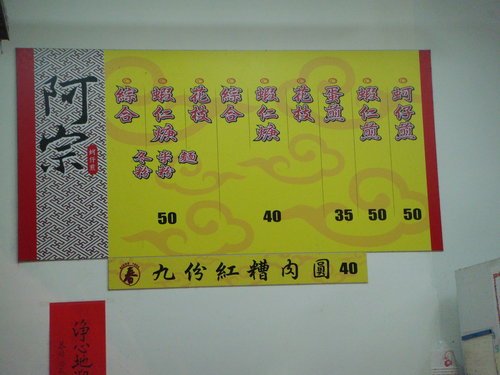 阿宗
蚵仔煎
蚵仔煎
蝦仁煎
蛋煎
花枝
蝦仁焿
綜合
花枝
蝦仁焿
綜合
麵
米粉
冬粉
50
40
35
50
50
九份紅糟肉圓40
淨心地